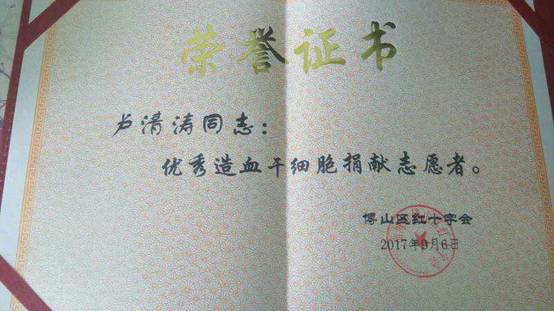 荣誉证书
卢清涛同志：
优秀造血干细胞捐献志愿者。
博山区红十字会
2017年9月6日